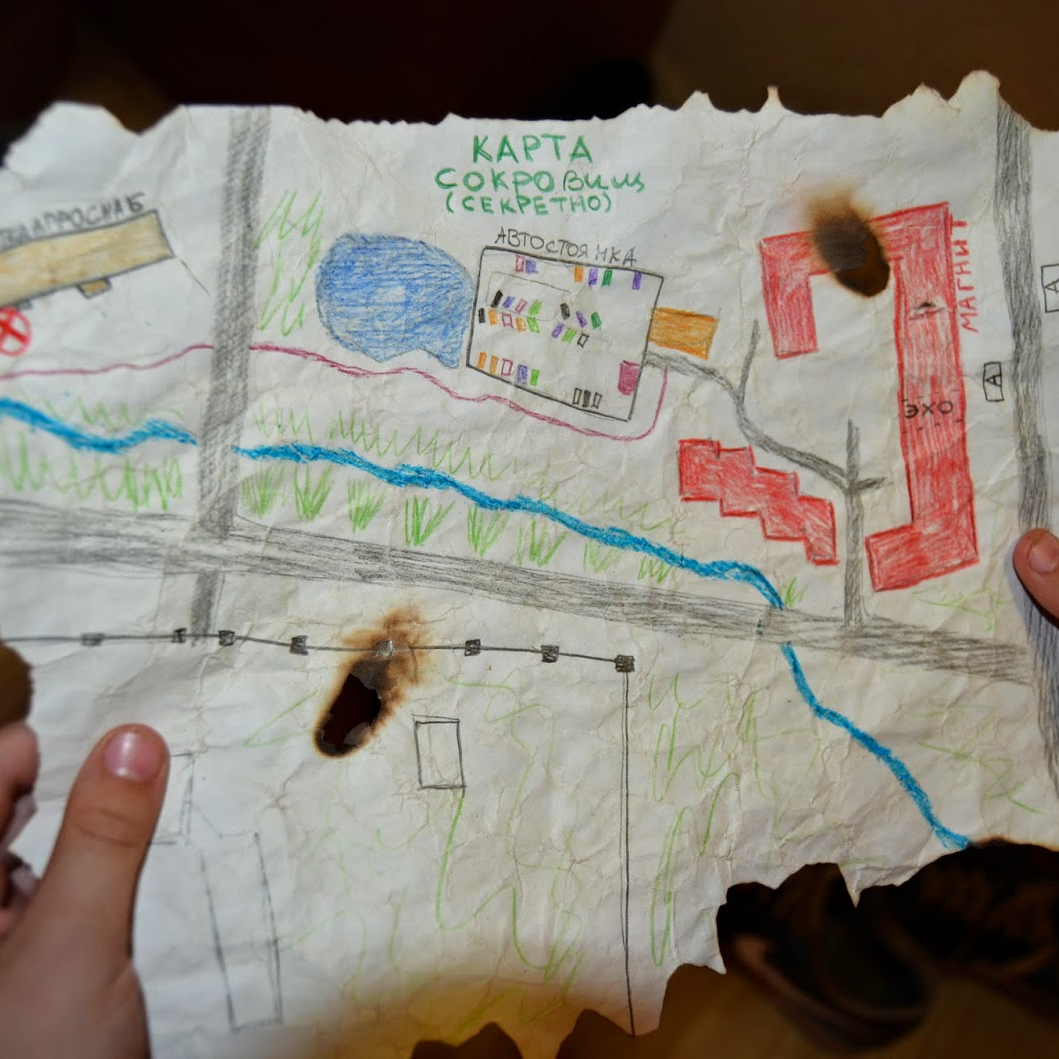 КАРТА
СОКРОВИЩ
(СЕКРЕТНО)
АВТОСТОЯНКА
МАГНИТ
ЭХО
А
А